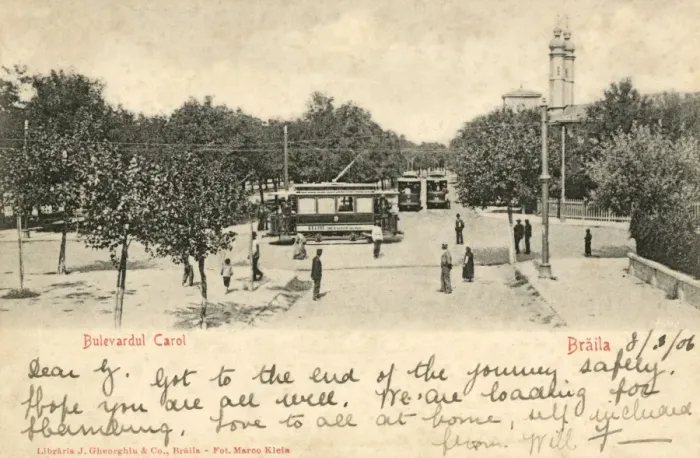 Bulevardul Carol
Brăila
8/3/06
Dear G. Got to the end of the journey safely.
Hope you are all well. We are loading for
Hamburg. Love to all at home, self included
from Will
Librăria J. Gheorghiu & Co., Brăila - Fot. Marco Klein